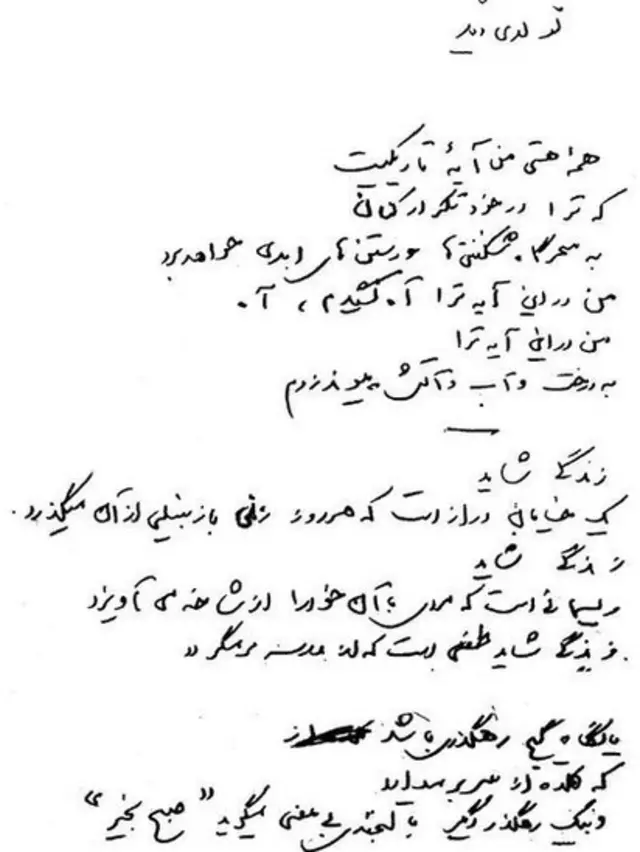 تولدی دیگر
همهٔ هستی من آیهٔ تاریکیست
که ترا در خود تکرار کنان
به سحرگاه شکفتن‌ها و رستن‌های ابدی خواهد برد
من در این آیه ترا آه کشیدم، آه
من در این آیه ترا
به درخت و آب و آتش پیوند زدم
زندگی شاید
یک خیابان دراز است که هر روز زنی با زنبیلی از آن میگذرد.
زندگی شاید
ریسمانی است که مردی با آن خود را از شاخه می آویزد
زندگی شاید طفلی است که از مدرسه برمیگردد.
یا نگاه گیج رهگذری باشد
که کلاه از سر بر میدارد
و به یک رهگذر دیگر با لبخندی بی معنی میگوید "صبح بخیر"